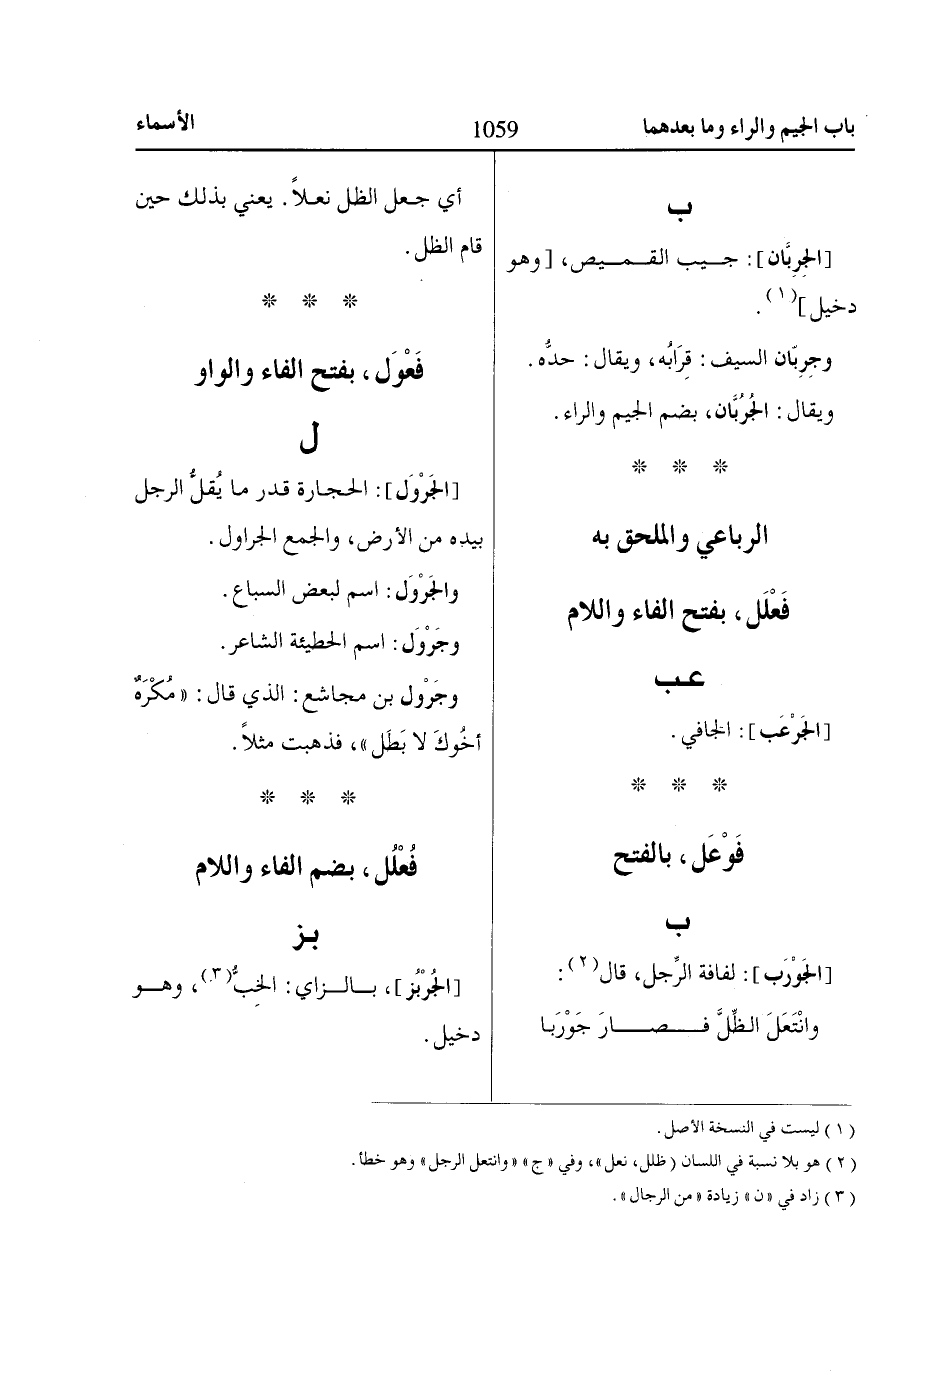 باب الجيم والراء وما بعدهما
1059
الأسماء
ب
[الجِرِبَّان]: جيب القميص، [وهو
دخيل](١).
وجِرِبّان السيف: قِرَابُه، ويقال: حدُّه.
ويقال: الجُرُبَّان، بضم الجيم والراء.
* * *
الرباعي والملحق به
فَعْلَل، بفتح الفاء واللام
عب
[الجَرْعَب]: الجافي.
* * *
فَوْعَل، بالفتح
ب
[الجَوْرَب]: لفافة الرِّجل، قال(٢):
وانْتَعَلَ الظِّلَّ فصارَ جَوْرَبا
أي جعل الظل نعلاً. يعني بذلك حين
قام الظل.
* * *
فَعْوَل، بفتح الفاء والواو
ل
[الجَرْوَل]: الحجارة قدر ما يُقلُّ الرجل
بيده من الأرض، والجمع الجراول.
والجَرْوَل: اسم لبعض السباع.
وجَرْوَل: اسم الحطيئة الشاعر.
وجَرْول بن مجاشع: الذي قال: «مُكْرَهٌ
أخُوكَ لا بَطَل»، فذهبت مثلاً.
* * *
فُعْلُل، بضم الفاء واللام
بز
[الجُرْبُز]، بالزاي: الخِبُّ(٣)، وهو
دخيل.
(١) ليست في النسخة الأصل.
(٢) هو بلا نسبة في اللسان (ظلل، نعل»، وفي «ج» «وانتعل الرجل» وهو خطأ.
(٣) زاد في «ن» زيادة «من الرجال».